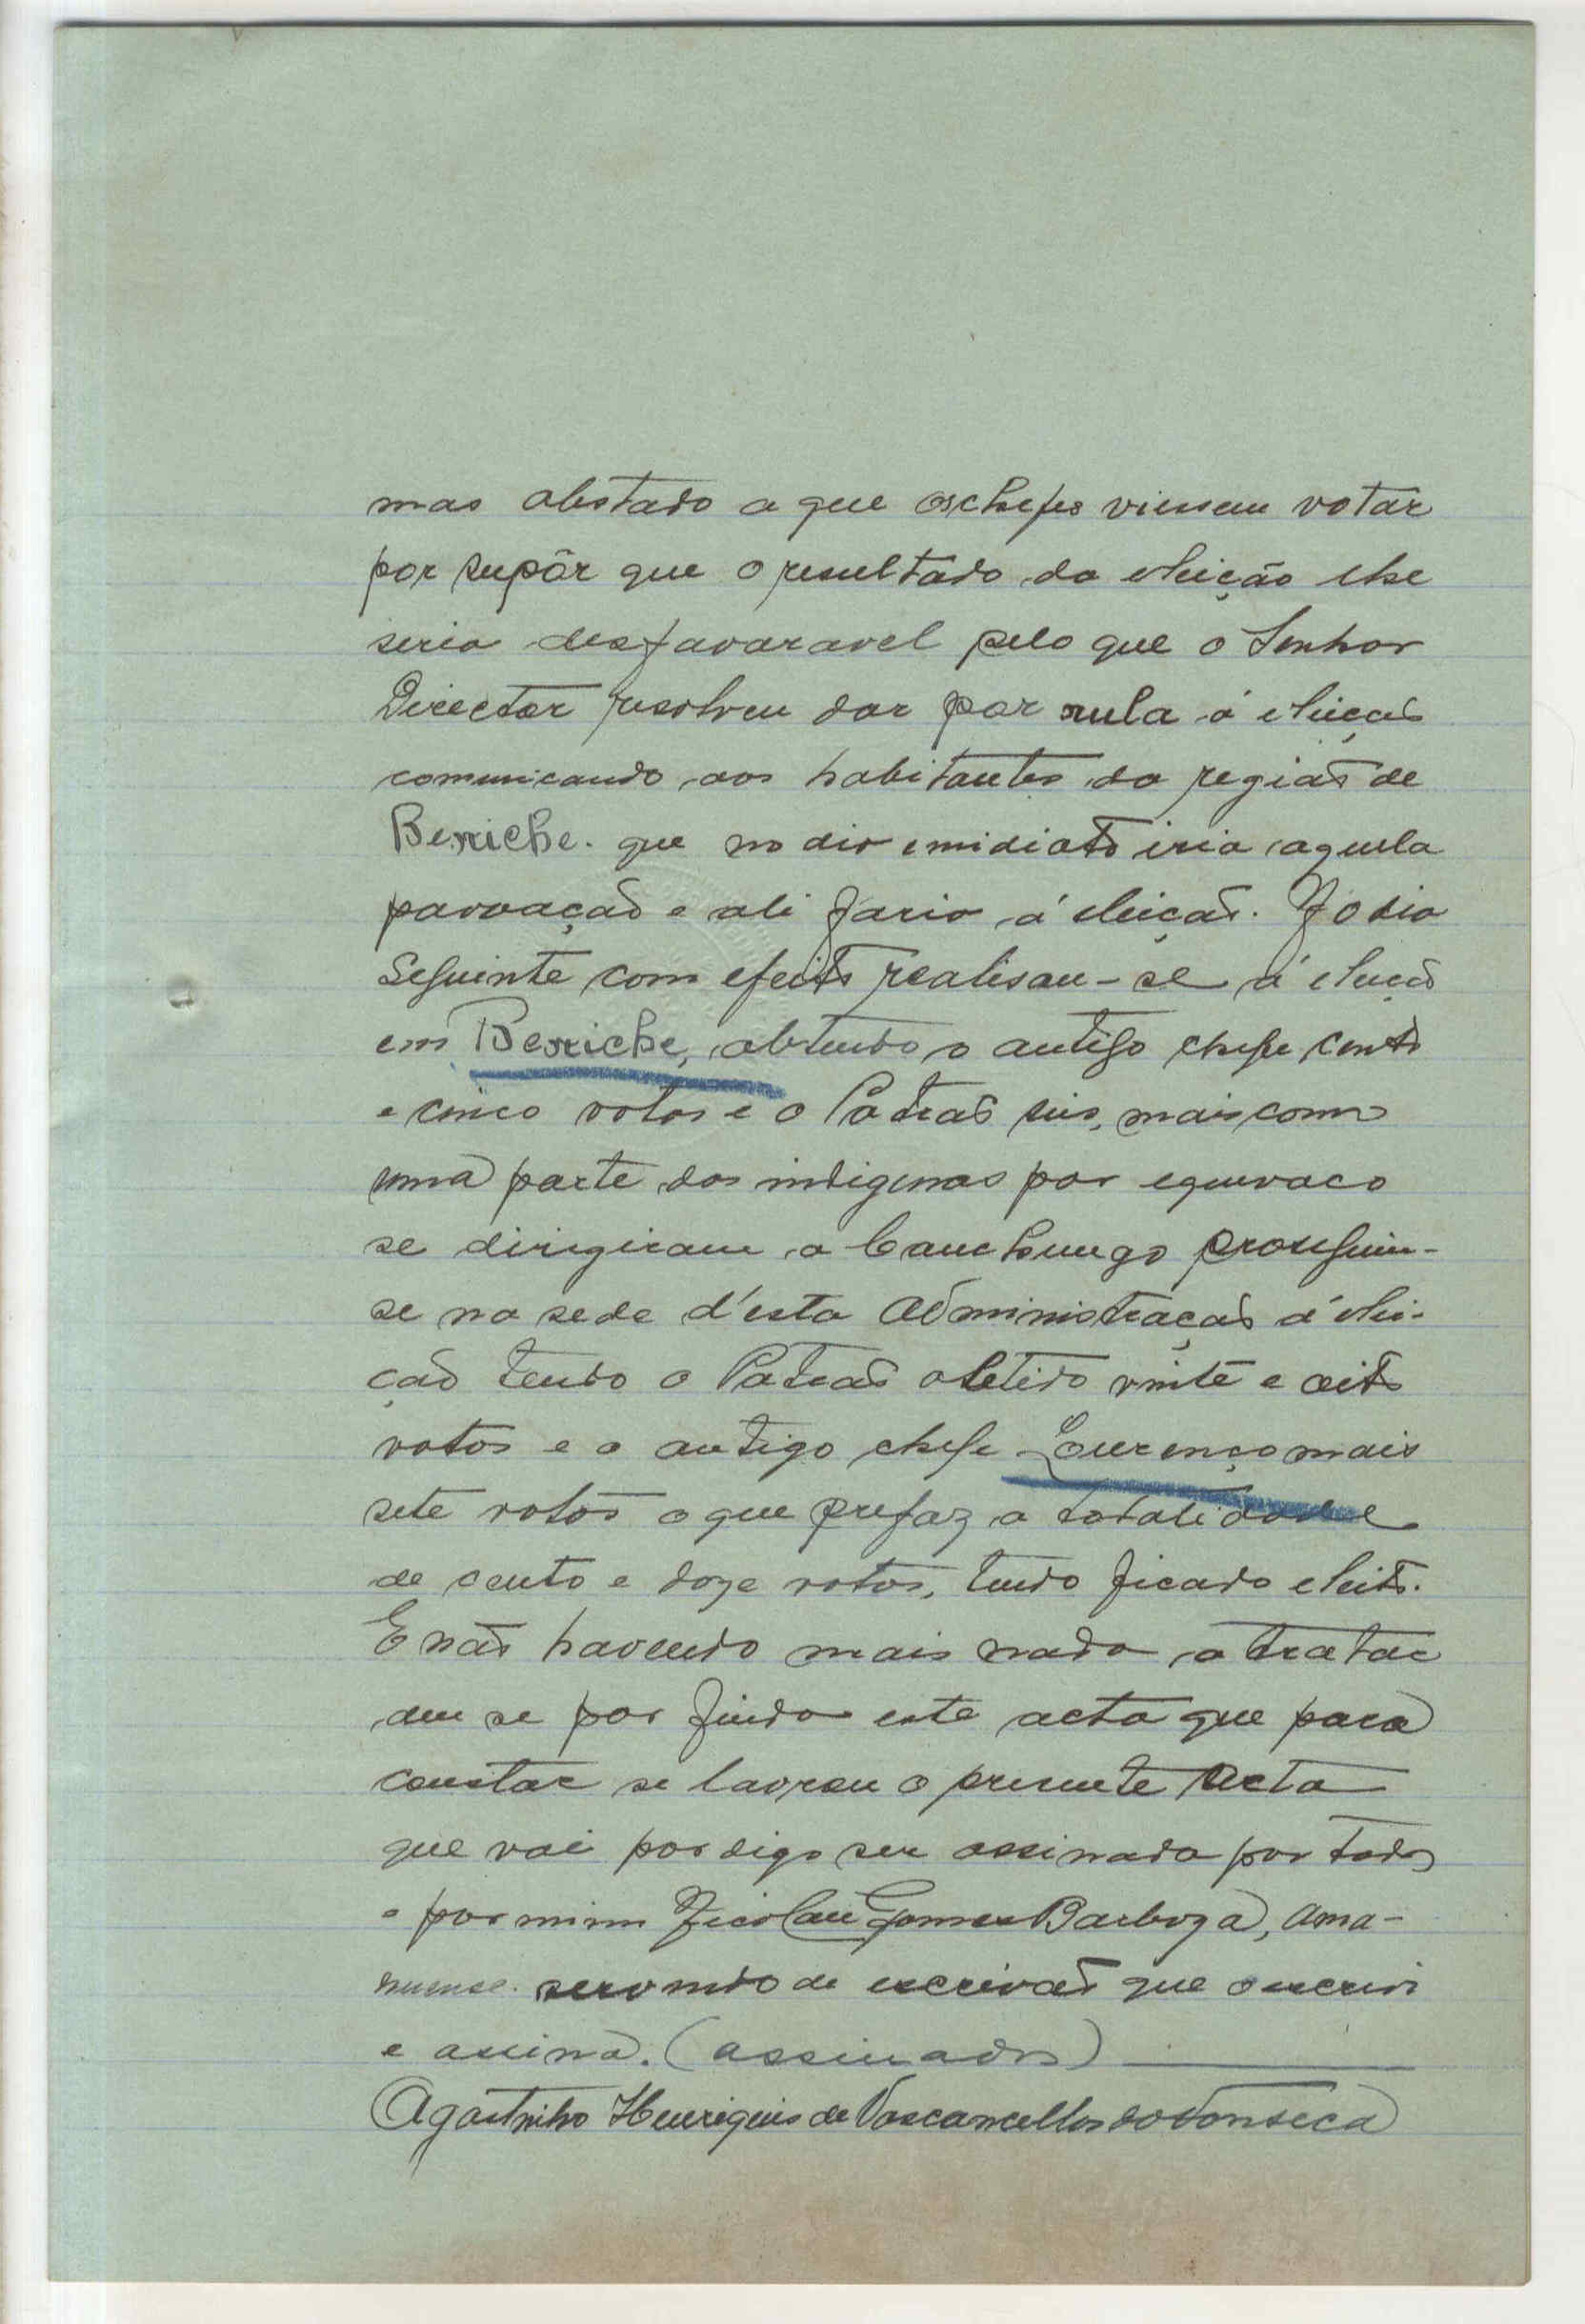 mas obstado a que os chefes viessem votar
por supôr que o resultado da eleição lhe
seria desfavaravel pelo que o Senhor
Director resolveu dar por nula á eleição
comunicando aos habitantes da região de
Beniche. que no dia imidiato iria aquela
povoação e ali faria á eleição. No dia
seguinte com efeito realisou-se á eleição
em Beniche, obtendo o antigo chefe cento
e cinco votos e o Patrão seis, mais como
uma parte dos indigenas por equivoco
se dirigiram a Canchungo proseguiu-
se na sede d'esta Administração á elei-
ção tendo o Patrão obtido vinte e oito
votos e o antigo chefe Lourenço mais
sete votos o que prefaz a totalidade
de cento e doze votos, tendo ficado eleito.
E não havendo mais nada a tratar
deu se por finda esta acta que para
constar se lavrou a presente acta
que vai por digo ser assinada por todos
e por mim Nicolau Gomes Barboza, ama-
nuense servindo de escrivão que o escrevi
e assino. (assinados)
Agostinho Henriques de Vasconcellos da Fonseca